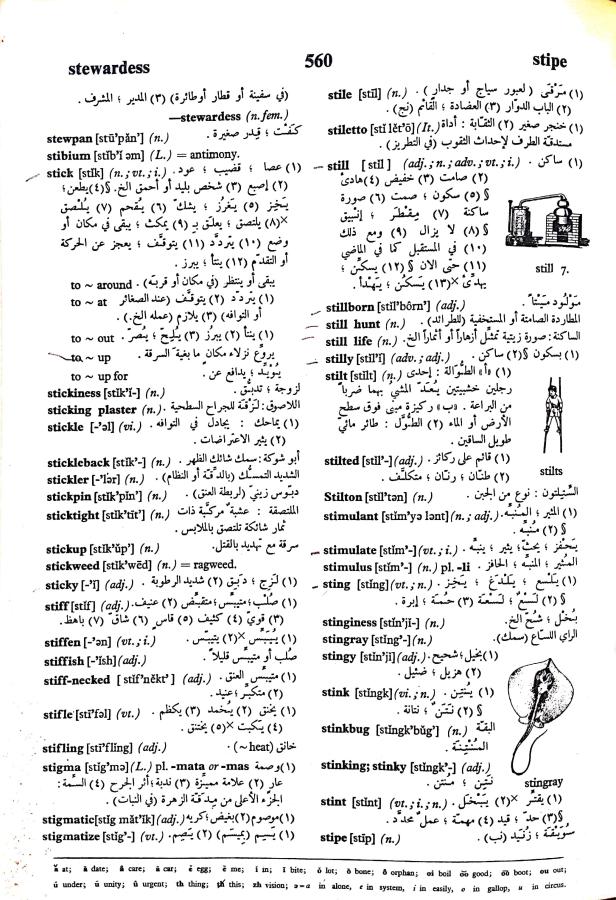 stewardess 560 stipe
(في سفينة أو قطار أوطائرة) (٣) المدير ؛ المشرف .
—stewardess (n. fem.)
stewpan [stū'păn'] (n.) كَفْت ؛ قِدر صغيرة .
stibium [stĭb'ĭ əm] (L.) = antimony.
stick [stĭk] (n. ; vt. ; i.) (١) عصا ؛ قضيب ؛ عود .
(٢) إصبع (٣) شخص بليد أو أحمق الخ. §(٤) يطعن ؛
يَخِز (٥) يَغْرُز ؛ يشك (٦) يُقحم (٧) يُلصق
×(٨) يلتصق ؛ يعلق بـ (٩) يمكث ؛ يبقى في مكان أو
وضع (١٠) يتردّد (١١) يتوقّف ؛ يعجز عن الحركة
أو التقدّم (١٢) ينتأ ؛ يبرز .
to ~ around يبقى أو ينتظر (في مكان أو قربه) .
to ~ at (١) يتردّد (٢) يتوقّف (عند الصغائر
أو التوافه) (٣) يلازم (عمله الخ.) .
to ~ out (١) ينتأ (٢) يبرز (٣) يُلِحّ ؛ يُصرّ .
to ~ up يروِّع نزلاء مكان ما بغية السرقة .
to ~ up for يُؤيِّد ؛ يدافع عن .
stickiness [stĭk'ĭ-] (n.) لزوجة ؛ تدبّق .
sticking plaster (n.) اللاصوق : لزقة للجراح السطحية .
stickle [-'əl] (vi.) (١) يماحك ؛ يجادل في التوافه .
(٢) يثير الاعتراضات .
stickleback [stĭk'-] (n.) أبو شوكة : سمك شائك الظهر .
stickler [-'lər] (n.) الشديد التمسك (بالدقة أو النظام) .
stickpin [stĭk'pĭn'] (n.) دبّوس زيني (لربطة العنق) .
sticktight [stĭk'tīt'] (n.) الملتصقة : عشبة مركّبية ذات
ثمار شائكة تلتصق بالملابس .
stickup [stĭk'ŭp'] (n.) سرقة مع تهديد بالقتل .
stickweed [stĭk'wēd] (n.) = ragweed.
sticky [-'ĭ] (adj.) (١) لَزِج ؛ دَبِق (٢) شديد الرطوبة .
stiff [stĭf] (adj.) (١) صُلْب ؛ متيبّس ؛ متقبّض (٢) عنيف .
(٣) قويّ (٤) كثيف (٥) قاس (٦) شاقّ (٧) باهظ .
stiffen [-'ən] (vt. ; i.) (١) يُيَبِّس ×(٢) يتيبّس .
stiffish [-'ĭsh] (adj.) صلب أو متيبّس قليلاً .
stiff-necked [ stĭf'nĕkt' ] (adj.) (١) متيبّس العنق .
(٢) متكبّر ؛ عنيد .
stifle [stī'fəl] (vt.) (١) يخنق (٢) يُخمد (٣) يكظم .
(٤) يكبت ×(٥) يختنق .
stifling [stī'flĭng] (adj.) خانق (heat~) .
stigma [stĭg'mə] (L.) pl. -mata or -mas (١) وصمة
عار (٢) علامة مميّزة (٣) ندبة ؛ أثر الجرح (٤) السِّمة :
الجزء الأعلى من مدقّة الزهرة (في النبات) .
stigmatic [stĭg măt'ĭk] (adj.) (١) موصوم (٢) بغيض ؛ كريه .
stigmatize [stĭg'-] (vt.) (١) يَسِم (بمِيسم) (٢) يَصِم .
stile [stīl] (n.) (١) مَرْقَى (لعبور سياج أو جدار) .
(٢) الباب الدوّار (٣) العضادة ؛ القائم (نج) .
stiletto [stĭ lĕt'ō] (It.) (١) خنجر صغير (٢) الثقّابة : أداة
مستدقة الطرف لإحداث الثقوب (في التطريز) .
still [ stĭl ] (adj. ; n. ; adv. ; vt. ; i.) (١) ساكن .
(٢) صامت (٣) خفيض (٤) هادئ
§(٥) سكون ؛ صمت (٦) صورة
ساكنة (٧) مِقطَر ؛ إنبيق
§(٨) لا يزال (٩) ومع ذلك
(١٠) في المستقبل كما في الماضي
(١١) حتى الان §(١٢) يسكّن ؛
يهدّئ ×(١٣) يسكن ؛ يهدأ .
still 7.
stillborn [stĭl'bôrn'] (adj.) مولود ميتاً .
still hunt (n.) المطاردة الصامتة أو المستخفية (للطرائد) .
still life (n.) الساكنة : صورة زيتية تمثّل أزهاراً أو أثماراً الخ .
stilly [stĭl'ĭ] (adv. ; adj.) (١) بسكون §(٢) ساكن .
stilt [stĭlt] (n.) (١) «أ» الطوّالة : إحدى
رجلين خشبيتين يُعدّ المشي بهما ضرباً
من البراعة . «ب» ركيزة مبنى فوق سطح
الأرض أو الماء (٢) الطُّوَّل : طائر مائيّ
طويل الساقين .
stilts
stilted [stĭl'-] (adj.) (١) قائم على ركائز .
(٢) طنّان ؛ رنّان ؛ متكلّف .
Stilton [stĭl'tən] (n.) الستيلتون : نوع من الجبن .
stimulant [stĭm'yə lənt] (n. ; adj.) (١) المثير ؛ المنبّه .
§(٢) منبّه .
stimulate [stĭm'-] (vt. ; i.) يحفز ؛ يحث ؛ يثير ؛ ينبّه .
stimulus [stĭm'-] (n.) pl. -li المثير ؛ المنبّه ؛ الحافز .
sting [stĭng] (vt. ; n.) (١) يلسع ؛ يلدغ ؛ يخز .
§(٢) لَسْع ؛ لَسْعة (٣) حُمَة ؛ إبرة .
stinginess [stĭn'jĭ-] (n.) بُخل ؛ شُحّ الخ .
stingray [stĭng'-] (n.) الراي اللسّاع (سمك) .
stingy [stĭn'jĭ] (adj.) (١) بخيل ؛ شحيح .
(٢) هزيل ؛ ضئيل .
stink [stĭngk] (vi. ; n.) (١) يُنتِن .
§(٢) نَتَن ؛ نتانة .
stinkbug [stĭngk'bŭg'] (n.) البقة
المُنتِنة .
stinking; stinky [stĭngk'-] (adj.)
نَتِين ؛ مُنتِن .
stingray
stint [stĭnt] (vt. ; i. ; n.) (١) يقتّر ×(٢) يبخل .
§(٣) حدّ ؛ قيد (٤) مهمّة ؛ عمل محدّد .
stipe [stīp] (n.) سُوَيْقة ؛ زُنَيد (نب) .
ă at; ā date; â care; ä car; ĕ egg; ē me; ĭ in; ī bite; ŏ lot; ō bone; ô orphan; oi boil o͝o good; o͞o boot; ou out;
ŭ under; ū unity; û urgent; th thing; th this; zh vision; ə=a in alone, e in system, i in easily, o in gallop, u in circus.